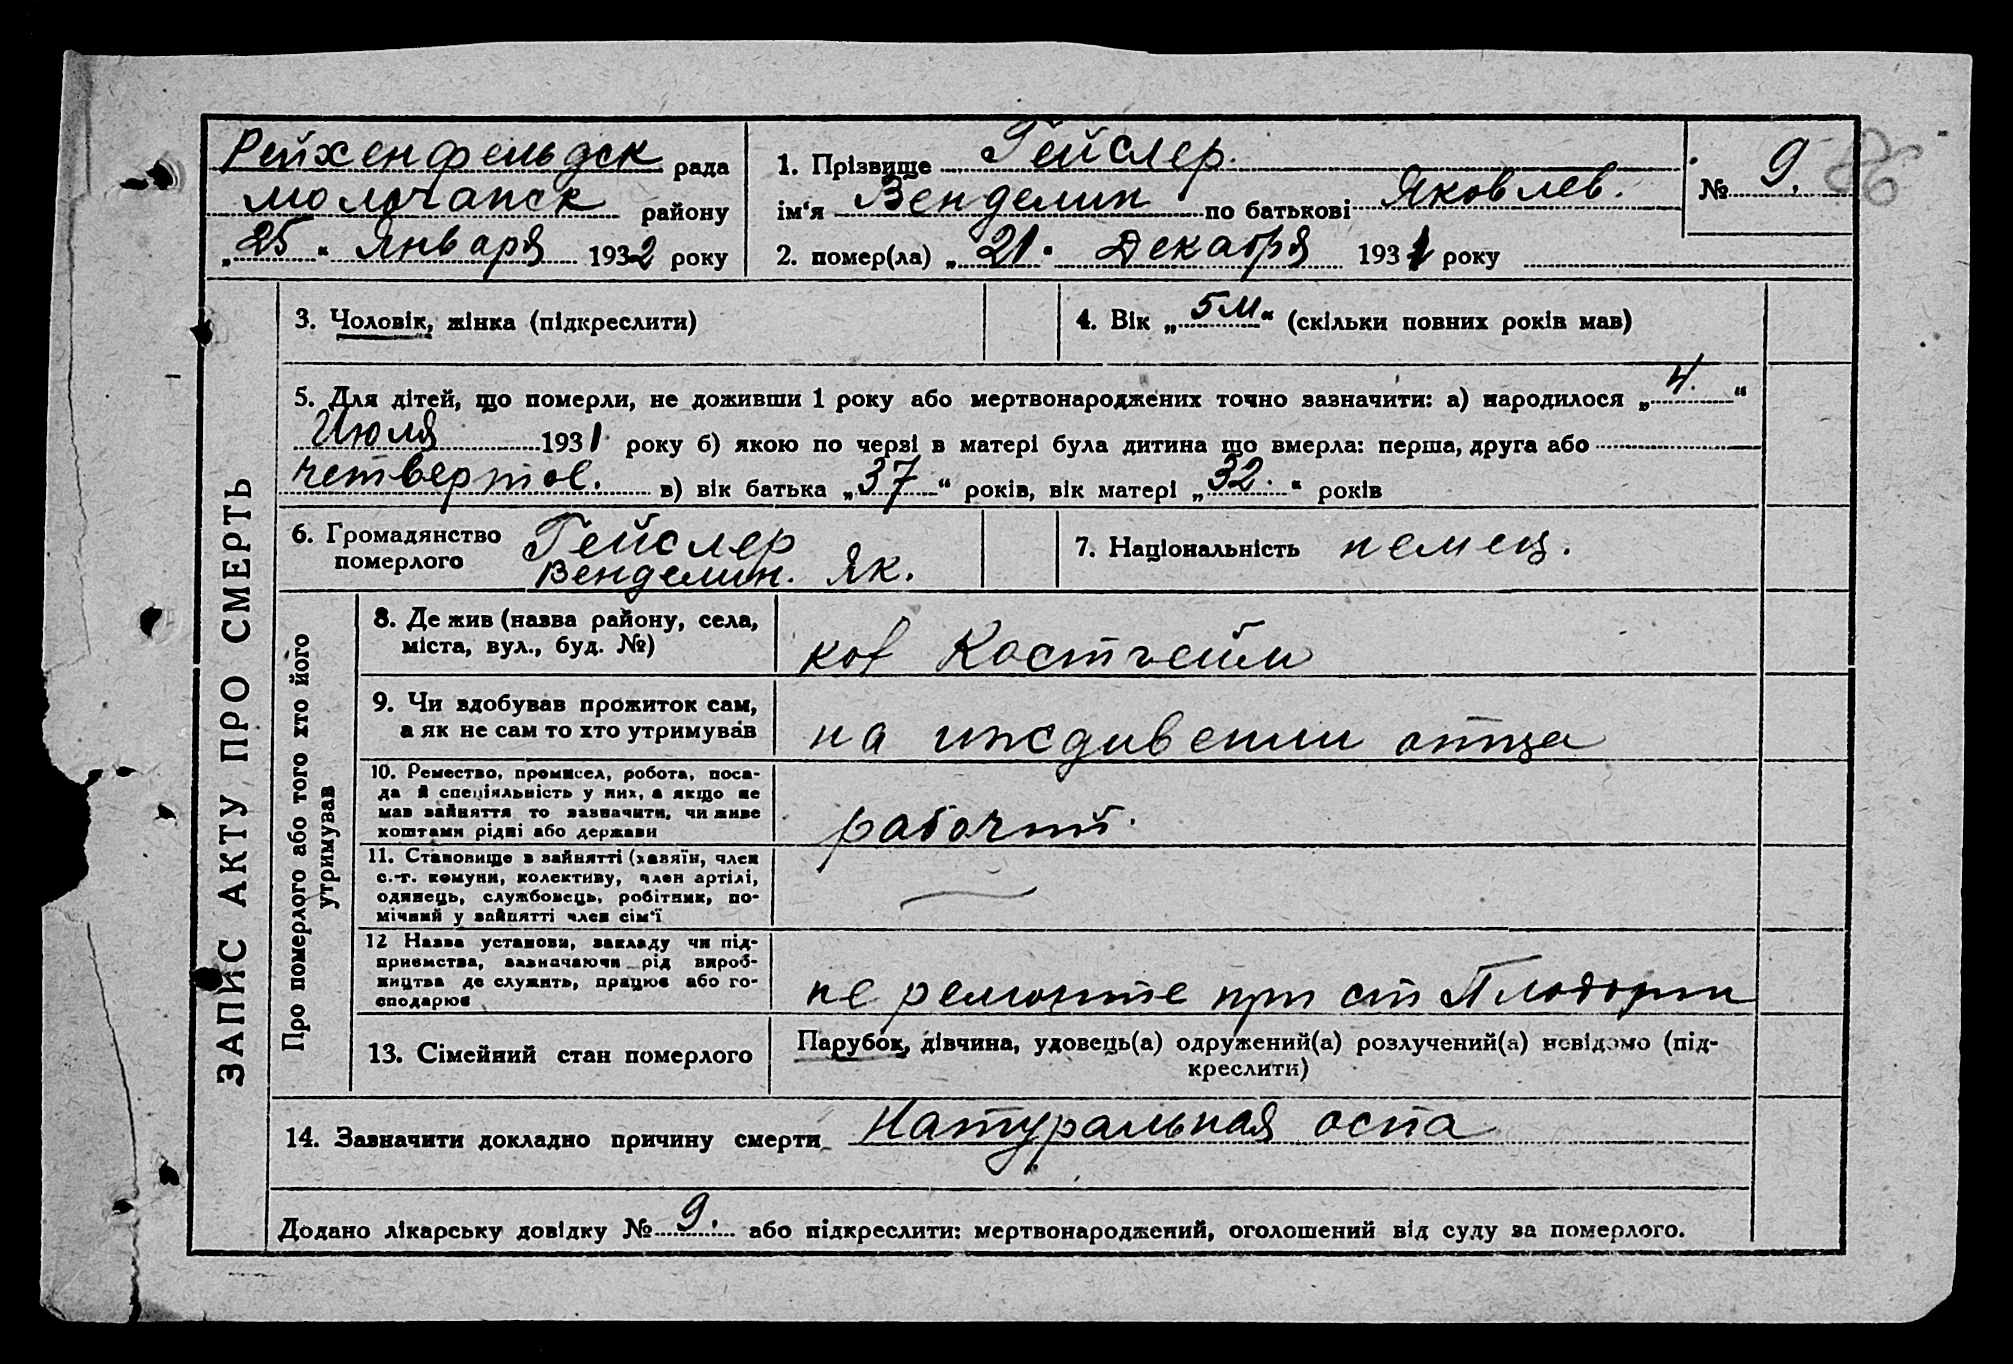 Рейхенфельдск рада
Молочанск району
„25“ Января 1932 року
1. Прізвище Гейслер.
ім‘я Венделин по батькові Яковлев.
2. помер(ла) „21. Декабря 1931 року
№ 9.
ЗАПИС АКТУ ПРО СМЕРТЬ
3. Чоловік, жінка (підкреслити)
4. Вік „5м“ (скільки повних років мав)
5. Для дітей, що померли, не доживши 1 року або мертвонароджених точно зазначити: а) народилося „4.“
Июля 1931 року б) якою по черзі в матері була дитина що вмерла: перша, друга або
четвертое. в) вік батька „37“ років, вік матері „32.“ років
6. Громадянство
померлого
Гейслер
Венделин. Як.
7. Національність немец.
Про померлого або того хто його
утримував
8. Де жив (назва району, села,
міста, вул., буд. №)
Костгейм
9. Чи здобував прожиток сам,
а як не сам то хто утримував
на иждивении отца
10. Ремество, промисел, робота, поса-
да й спеціяльність у них, а якщо не
мав зайняття то зазначити, чи живе
коштами рідні або держави
рабочий.
11. Становище в зайнятті (хазяїн, член
с.-г. комуни, колективу, член артілі,
одинець, службовець, робітник, по-
мічний у зайнятті член сім‘ї
12 Назва установи, закладу чи під-
приємства, зазначаючи рід вироб-
ництва де служить, працює або го-
сподарює
не ремонте при ст
13. Сімейний стан померлого
Парубок, дівчина, удовець(а) одружений(а) розлучений(а) невідомо (під-
креслити)
14. Зазначити докладно причину смерти Натуральная оспа
Додано лікарську довідку № 9. або підкреслити: мертвонароджений, оголошений від суду за померлого.